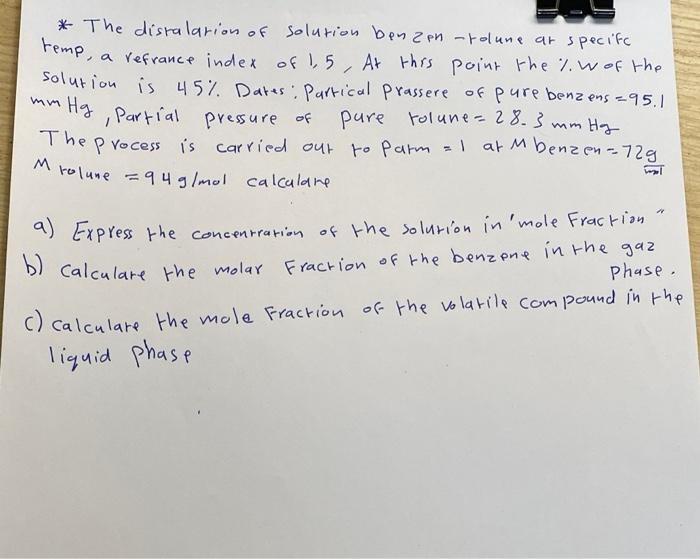 * The disralarion of solurion benzen -rolune ar specifc
remp, a refrance index of 1,5, At this point the %.w of the
solution is 45%. Dates: Partical Prassere of pure benzens = 95.1
mm Hg, Partial pressure of pure rolune = 28.3 mm Hg
The process is carried out to Parm = 1 at M benzen = 72g/mol
M rolune = 94 g/mol calculare
a) Express the concenrrarion of the solurion in 'mole Fraction"
b) calculare the molar Fraction of the benzene in the gaz
phase.
c) calculare the mole Fraction of the volatile compound in the
liquid phase